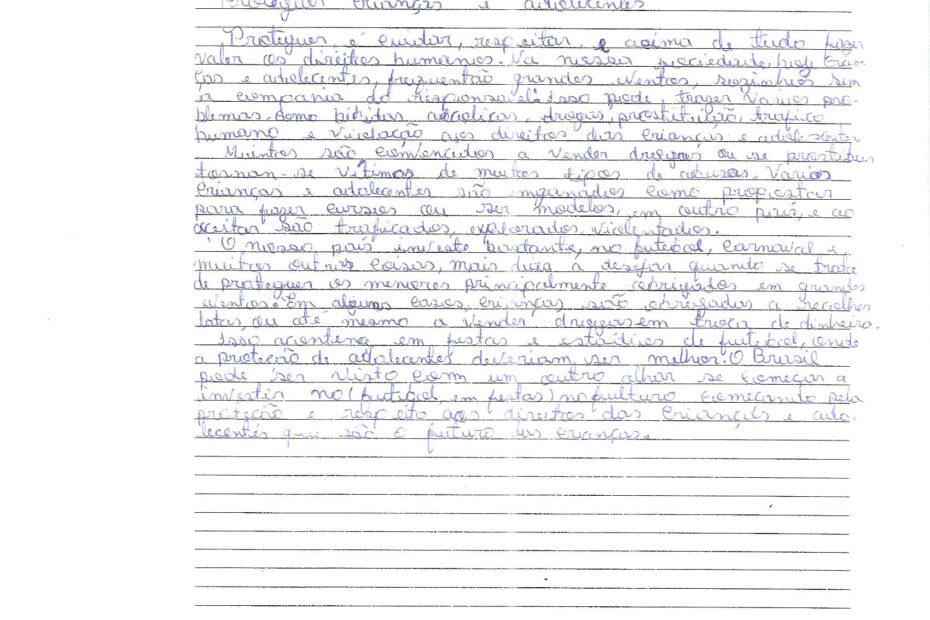 Proteguer crianças e adolecentes
Proteguer é cuidar, respeitar, e acima de tudo fazer
valer os direitos humanos. Na nossa sociedade, hoje crian-
ças e adolecentes, frequentão grandes eventos, sozinhos sem
a compania do responsavel. Isso pode, trazer varios pro-
blemas como bibidas alcolicas, drogas, prostituição, trafico
humano e violação aos direitos das crianças e adolecentes
Muintos são convencidos a vender drogas ou se prostituir
tornan-se vitimas de muitos tipos de abusos, varios
crianças e adolecentes são como propostar
para fazer cursos ou ser modelos, em outro país, e ao
aceitar são traficados, explorados, violentados.
O nosso país investe bastante, no futebol, carnaval e
muitas outras coisas, mais deixa a desejar quando se trata
de proteguer os menores principalmente obrigados em grandes
eventos. Em alguns casos, crianças, são obrigadas a recolher
latas, ou até mesmo a vender drogas em troca de dinheiro.
Isso acontence em festas e estádios de futebol, onde
a proteção de adolecentes deveriam ser melhor. O Brasil
pode ser visto com um outro olhar se começar a
investir no (futebol, em festas) no culturo começando pela
proteção e respeito aos direitos das crianças e ado-
lecentes que são o futuro das crianças.